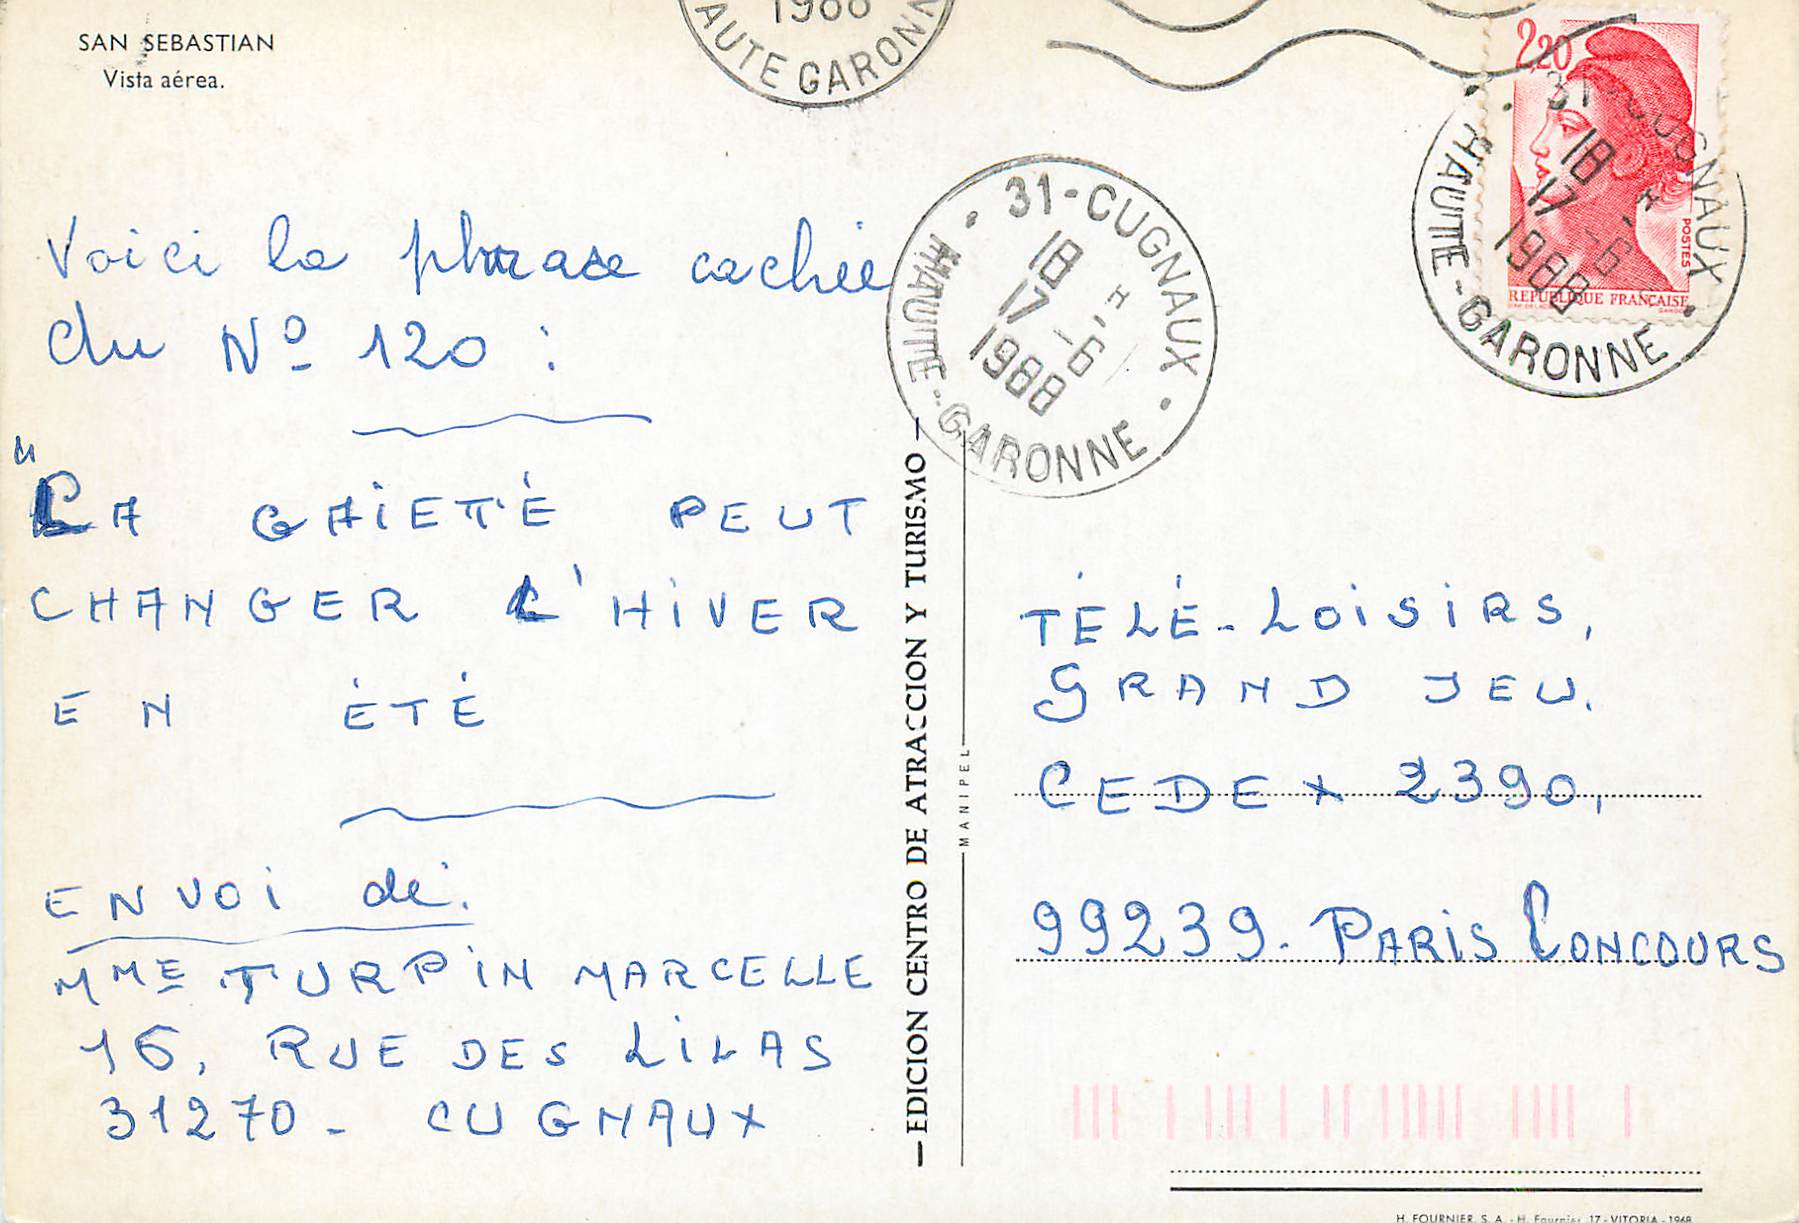 SAN SEBASTIAN
Vista aérea.
1988
HAUTE GARONNE
2,20
POSTES
REPUBLIQUE FRANÇAISE
31-CUGNAUX
18 H
17 -6
1988
HAUTE-GARONNE
31-CUGNAUX
18 H
17 -6
1988
HAUTE-GARONNE
Voici la phrase cachée
du Nº 120 :
"LA GAIETTÉ PEUT
CHANGER L'HIVER
EN ÉTÉ
ENVOI de:
MME TURPIN MARCELLE
16, RUE DES LILAS
31270 - CUGNAUX
— EDICION CENTRO DE ATRACCION Y TURISMO —
MANIPEL
TÉLÉ-LOISIRS,
GRAND JEU.
CEDEX 2390,
99239. PARIS CONCOURS
H. FOURNIER, S. A. - H. Fournier, 17 - VITORIA - 1968